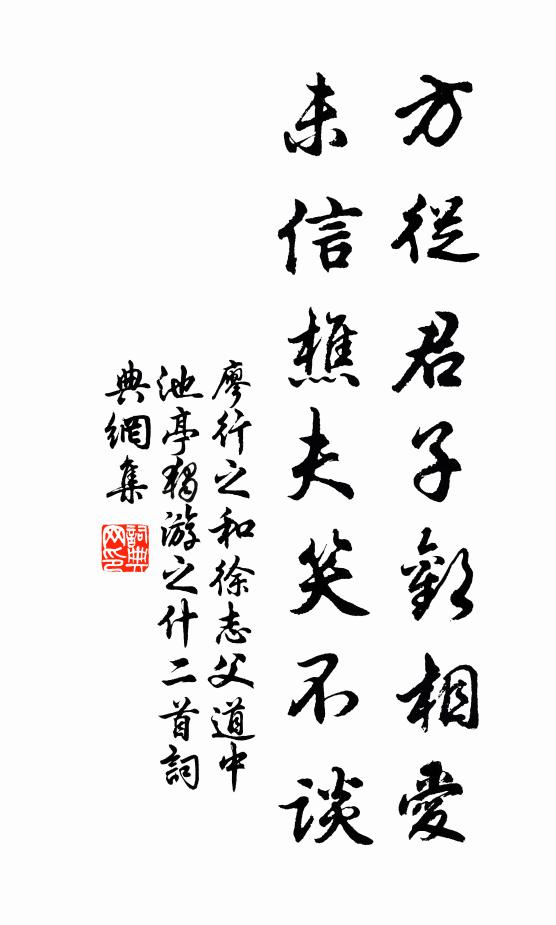 方從君子歡相愛
未信樵夫笑不談
廖行之和徐志父道中
池亭獨游之什二首詞
典網集
詞典
網印